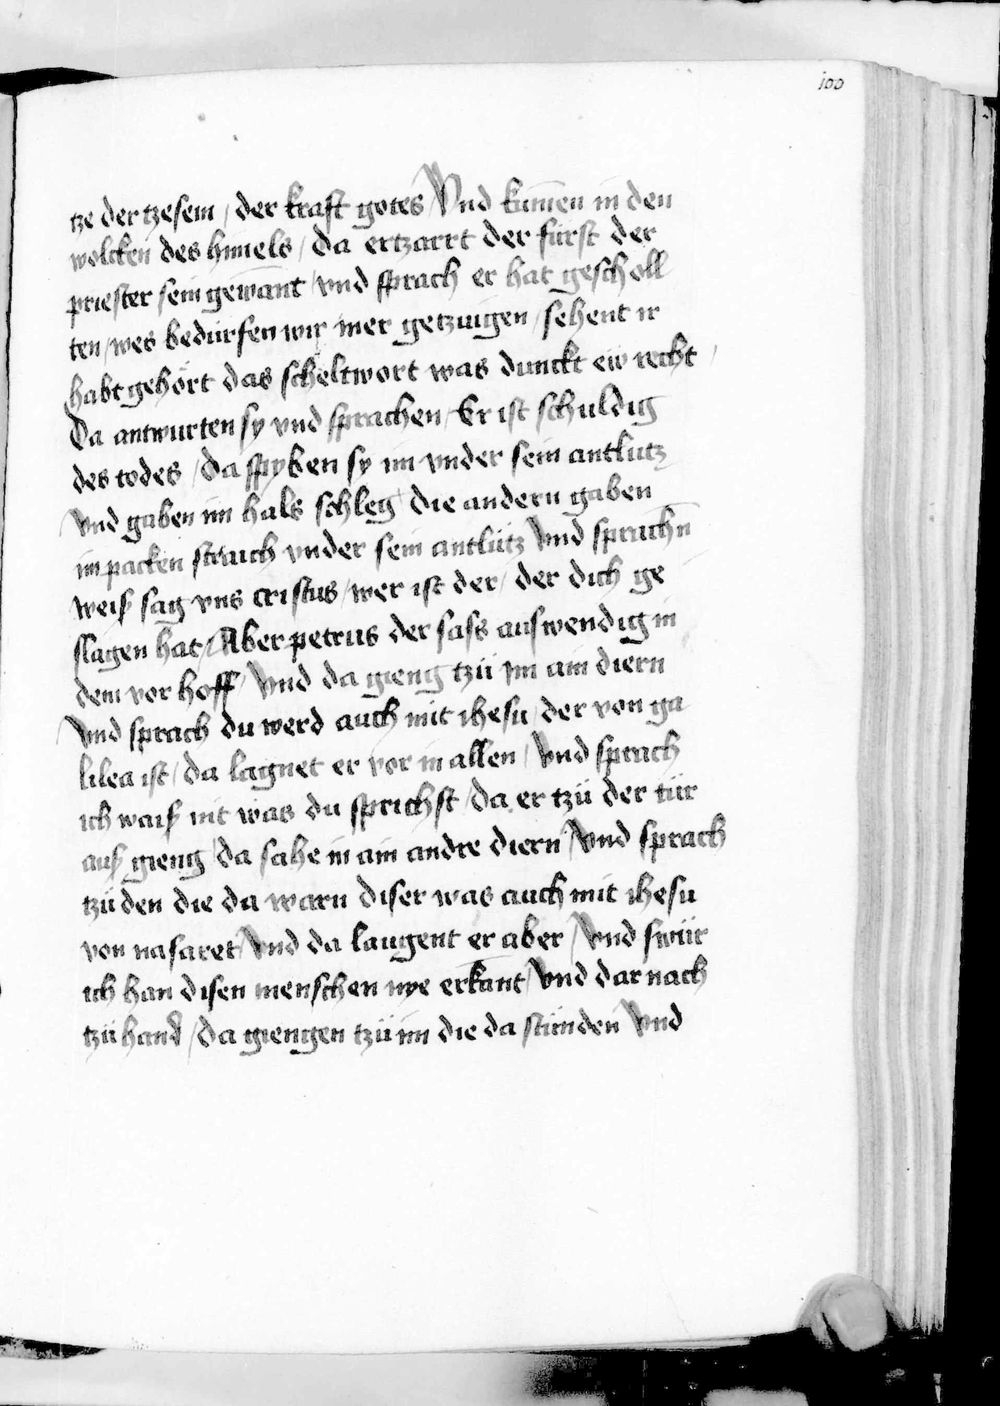 100
tze der tzesem / der kraft gotes Vnd kumen in den
wolcken des himels / da ertzarrt der fürst der
priester sein gewant / vnd sprach er hat gescholl
ten / wes bedürfen wir mer getzuigen / sehent ir
habt gehört das scheltwort was dunckt ew recht /
Da antwurten sy vnd sprachen / Er ist schuldig
des todes / da spyben sy im vnder sein antlutz
vnd gaben im hals schleg die andern gaben
im packen straich vnder sein antlütz Vnd sprachn̄
weiß sag vns cristus / wer ist der / der dich ge
slagen hat / Aber petrus der sass auswendig in
dem vor hoff / Vnd da gieng tzü im ain diern
Vnd sprach du werd auch mit ihesu / der von ga
lilea ist / da lagnet er vor in allen / Vnd sprach
ich waiß nit was du sprichst / da er tzü der tür
auß gieng / da sahe in ain andre diern Vnd sprach
tzü den die da warn diser was auch mit ihesu
von nasaret Vnd da laugent er aber / Vnd swür
ich han disen menschen nye erkant / Vnd dar nach
tzü hand / da giengen tzü im die da stünden Vnd